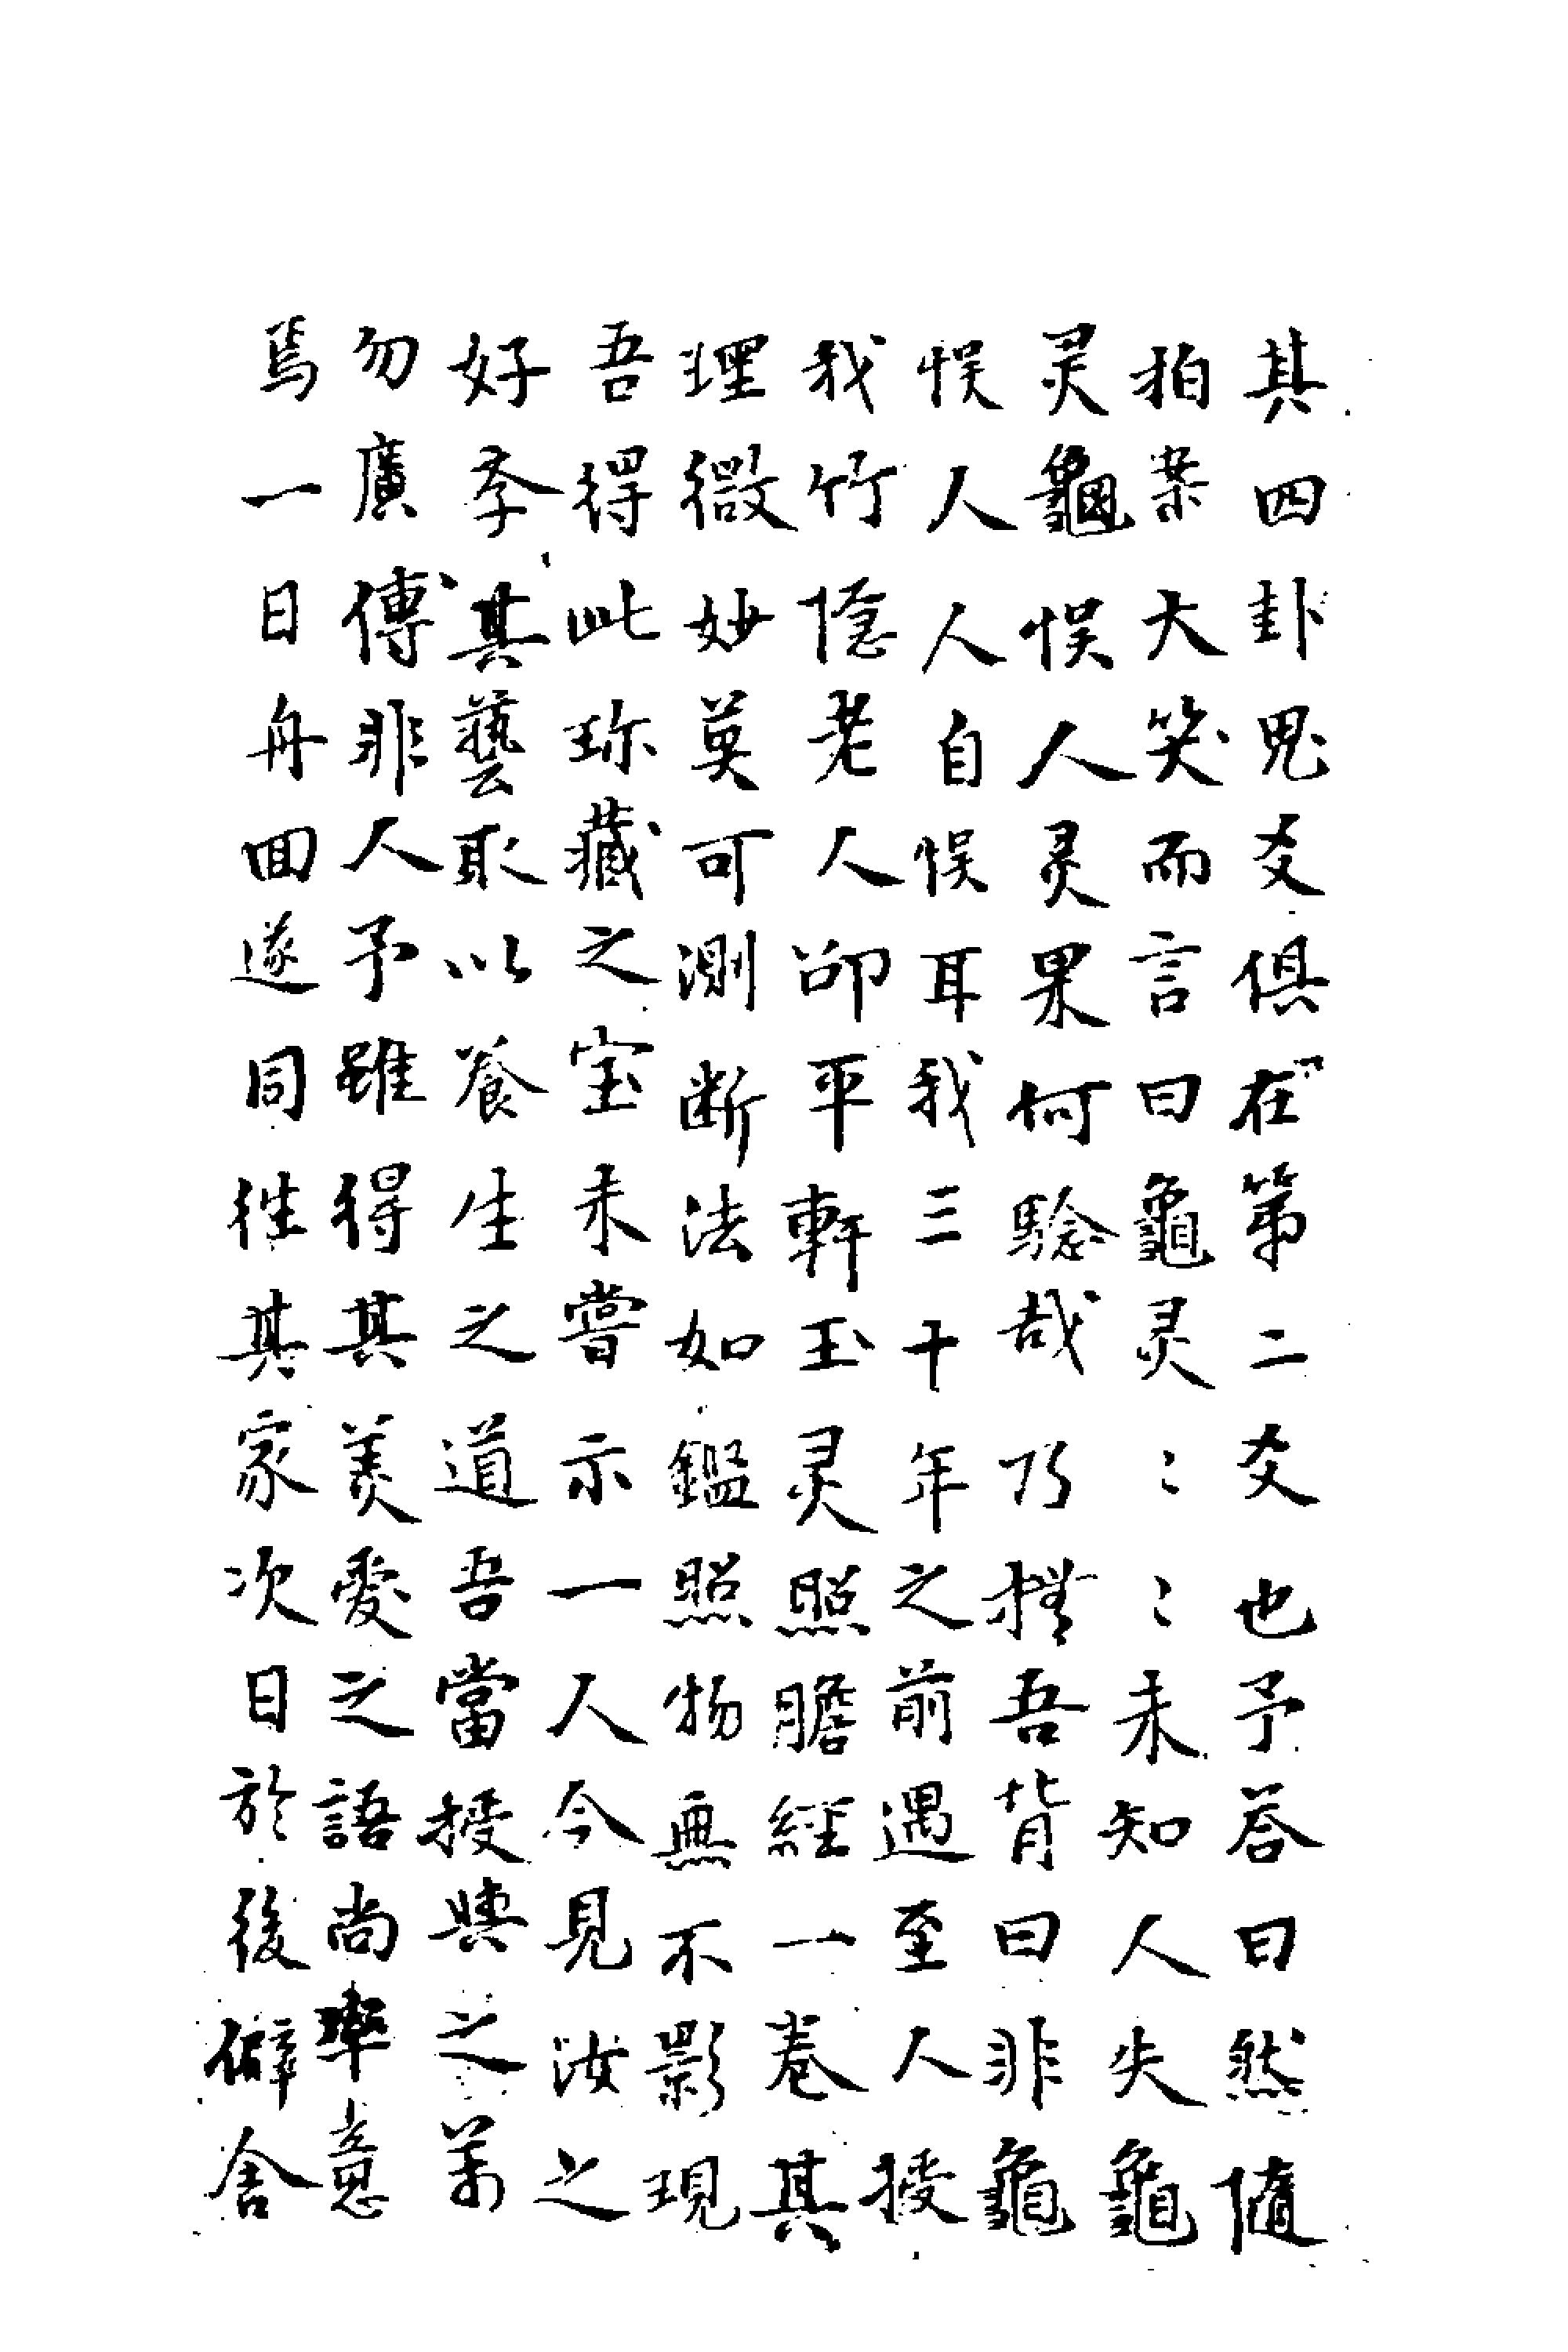 其四卦鬼爻俱在第二爻也予荅曰然隨
拍案大笑而言曰龜灵〻〻未知人失龜
灵龜悮人灵果何騐哉乃撫吾背曰非龜
悮人人自悮耳我三十年之前遇至人授
我竹隐老人卲平軒玉灵照膽經一卷其
理微妙莫可測断法如鑑照物無不影現
吾得此珎藏之宝未嘗示一人今見汝之
好孝其藝取以養生之道吾當授與之萬
勿廣傳非人予雖得其美愛之語尚率意
焉一日舟回遂同徃其家次日於後僻舍